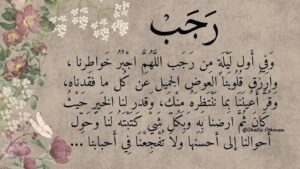 رَجَبْ
وَفِي أَولِ لَيْلَةٍ مِن رَجَب اللَّهُمَّ اجْبُرْ خَواطِرنا ،
وارْزُق قُلُوبَنَا العِوَضَ الجَمِيلَ عَنْ كُلِّ مَا فَقَدناه،
وَقُرَّ أَعْيُنَنَا بِمَا نَنْتَظِره مِنْكَ، وَقَدِر لَنَا الخَيرَ حَيْثُ
كَانَ ثُمَّ ارضنا بِهِ وَبِكُلِّ شَيْ كَتَبْتَهُ لَنَا وَحَوِّل
أَحوالنا إلى أحسنها ولا تُفْجِعْنا فِي أَحبابنا ...